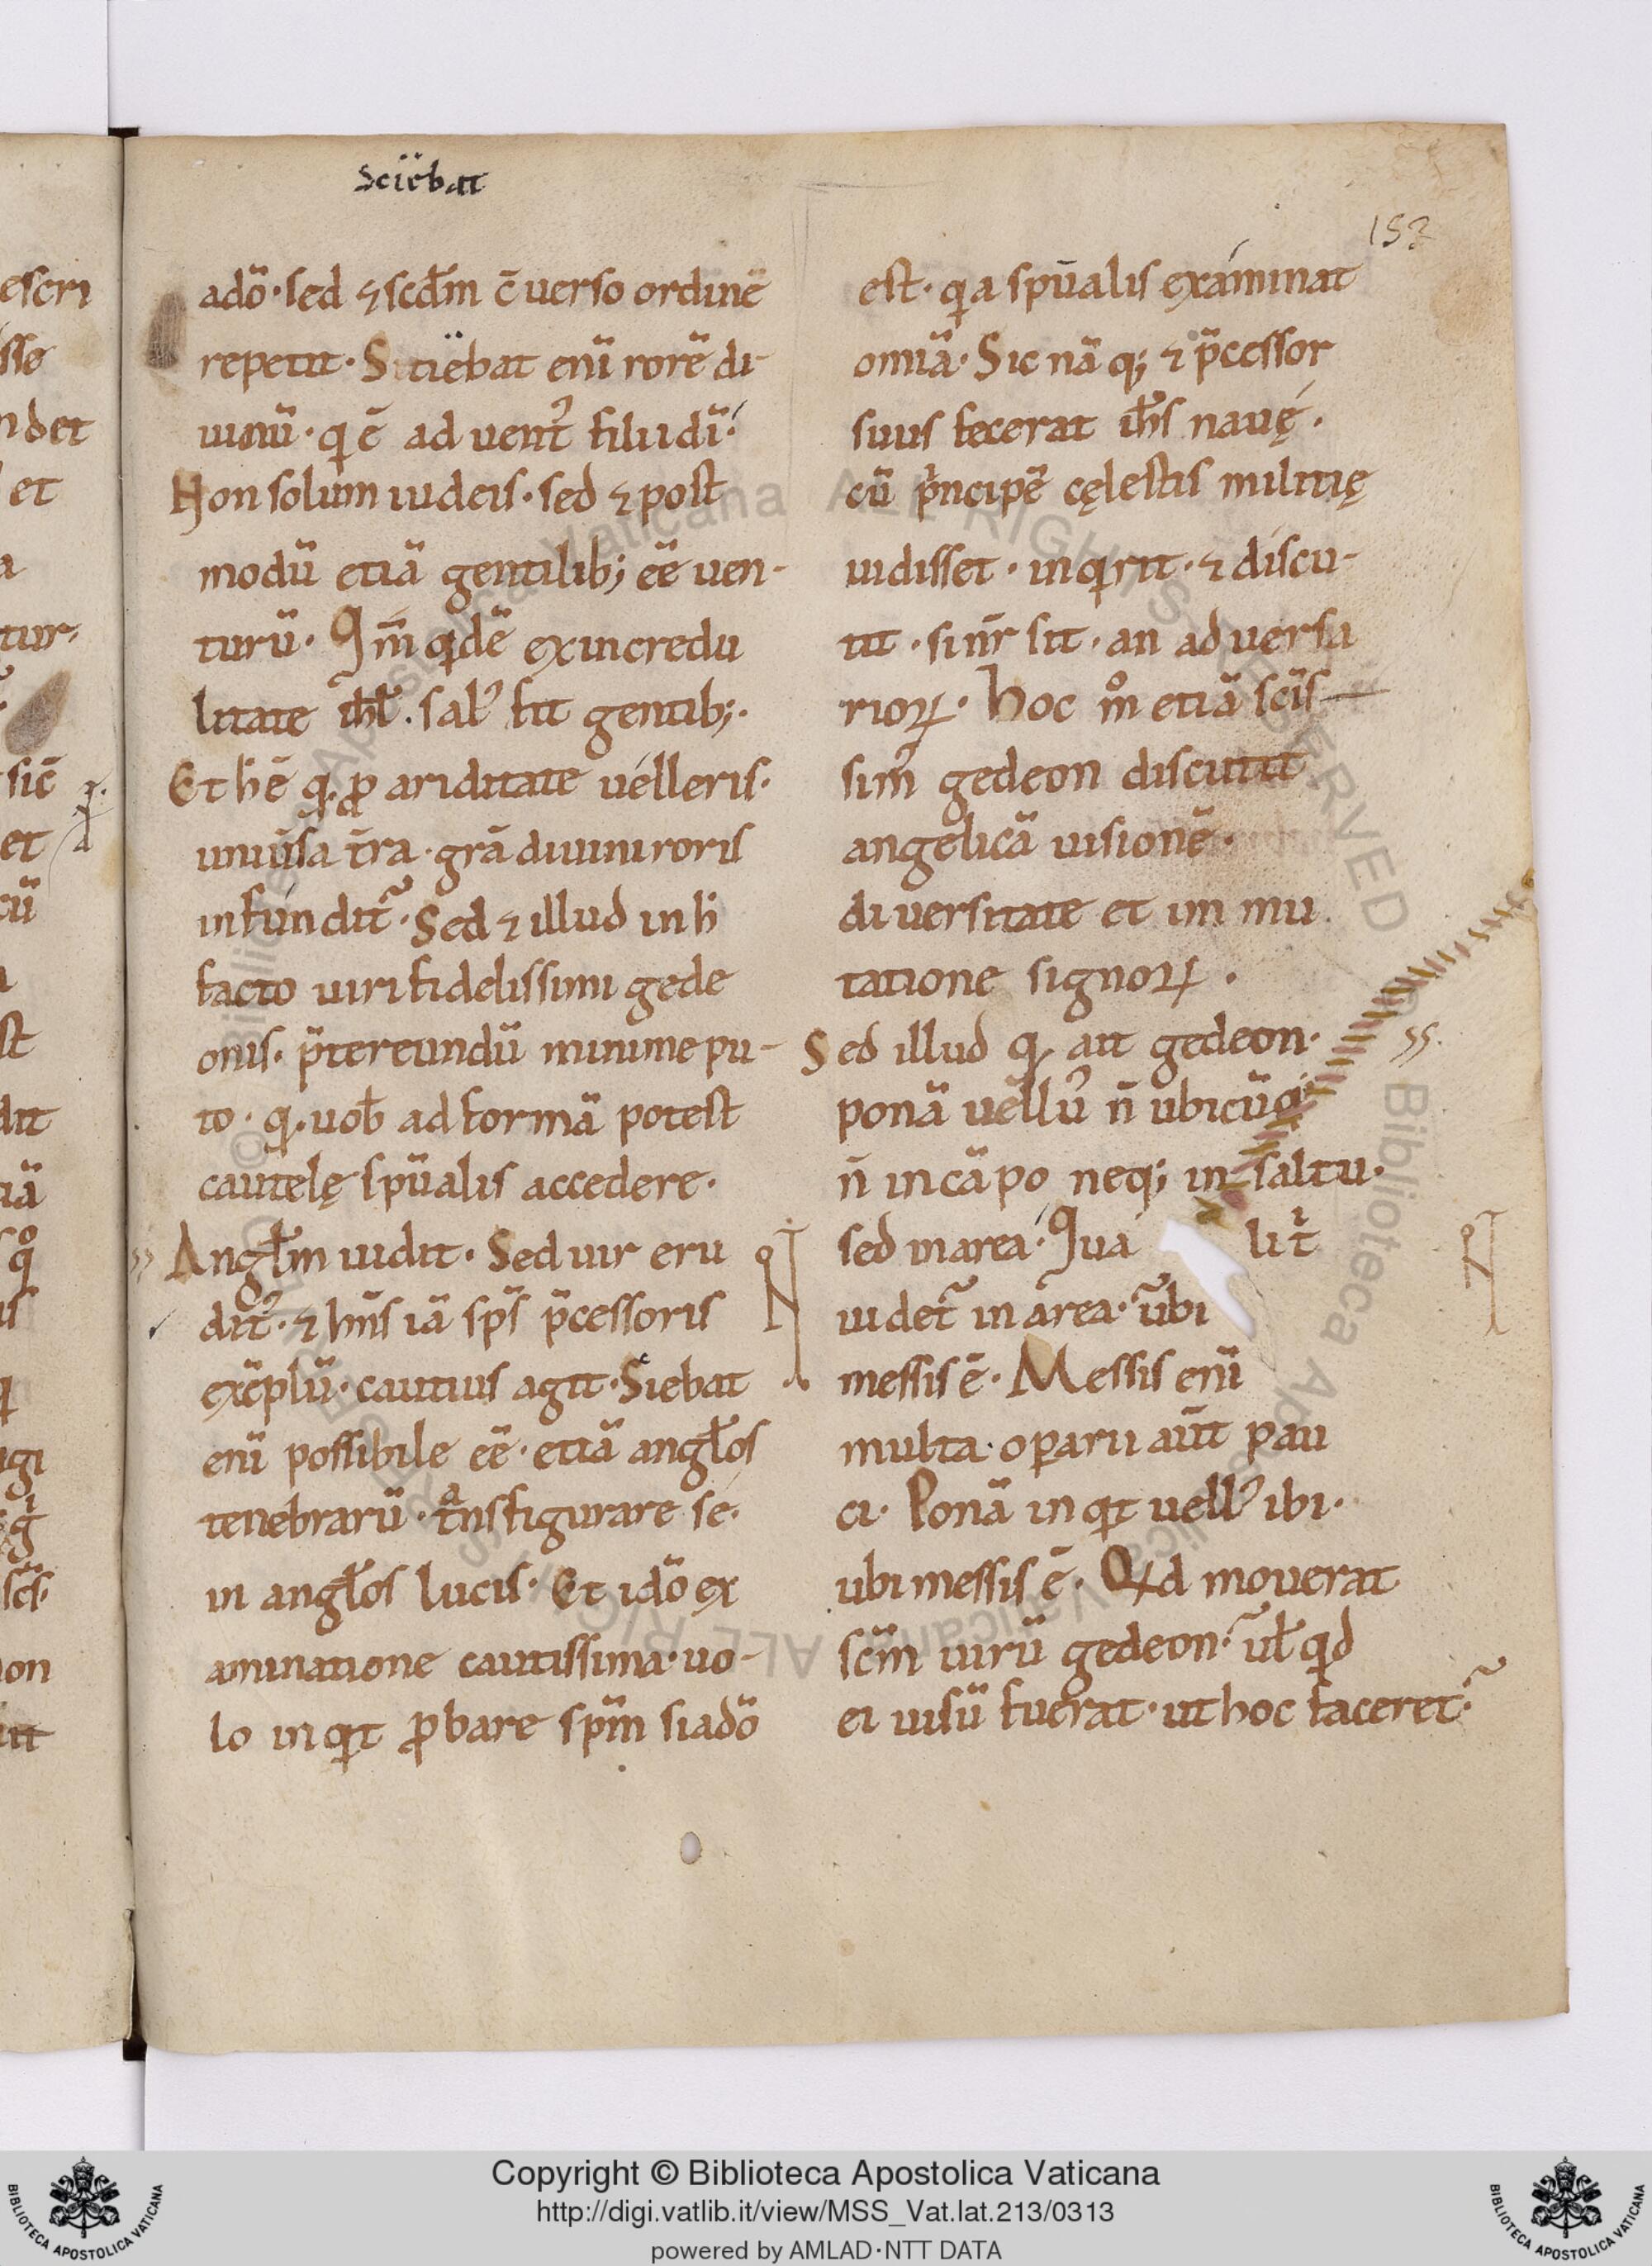 Sciebat
153
adō· sed ⁊ scd̄m c̄uerso ordinē
repetit· Sitiebat eni̅ rorē di-
uinū· qē aduent᷒ filii di̅·
Non solum iudeis· sed ⁊ post
modū etiā gentilib; eē uen-
turū· Im̄ qdē exincredu
litate ih̄l· sal᷒ fit gentib;·
Et h̄ ē q. ꝓ ariditate uelleris·
uniu̅sa t̄ra· gr̄a diuini roris
infundit᷑· Sed ⁊ illud in h̄
facto uiri fidelissimi gede
onis· p̄tereundū minime pu-
to· q. uob̄ ad formā potest
cautelę sp̄ualis accedere·
Angl̄m uidit· Sed uir eru
dit᷒· ⁊ hn̄s iā sp̄s p̄cessoris
exēplū· cautius agit· Sciebat
eni̅ possibile eē· etiā angl̄os
tenebrarū· tͣnsfigurare se·
in angl̄os lucis· Et idō ex
aminatione cautissima· uo-
lo inqt ꝓbare sp̄m si adō
est· qa sp̄ualis examinat
omīa· Sic nāq; ⁊ p̄cessor
suus fecerat ih̄s nauę·
cū pͥncipē cęlestis militię
uidisset· inqrit· ⁊ discu-
tit· si nr̄ sit· an aduersa
rioꝝ· Hoc m̊ etiā scīs
sim᷒ gedeon discutit
angelicā uisionē·
diuersitate et immu
tatione signoꝝ·
Sed illud q. ait gedeon·
ponā uell᷒ n̄ ubicūq;
n̄ in cāpo neq; in saltu·
sed in area· Qua litͥ
uidet᷑ in area· ubi
messis ē· Messis eni̅
multa· oꝑarii aūt pau
ci· Ponā inqt uell᷒ ibi·
ubi messis ē· Qd mouerat
scm̄ uirū gedeon· ul̄ qd
ei uisū fuerat· ut hoc faceret·
Copyright © Biblioteca Apostolica Vaticana
http://digi.vatlib.it/view/MSS_Vat.lat.213/0313
powered by AMLAD·NTT DATA
BIBLIOTECA APOSTOLICA VATICANA
BIBLIOTECA APOSTOLICA VATICANA